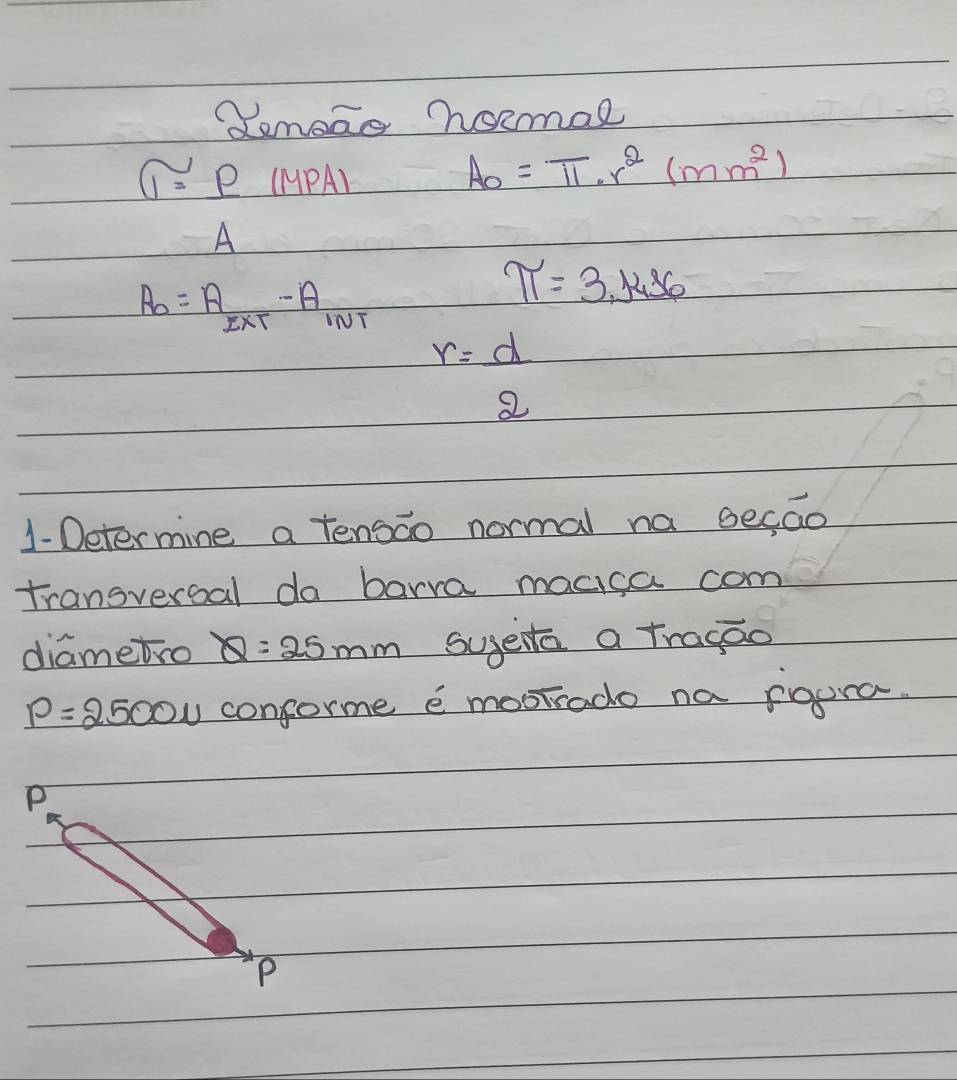 Tensão Normal
σ = P (MPA)    A₀ = π.r² (mm²)
A
A₀ = A EXT - A INT    π = 3,1416
r = d
2
1- Determine a Tensão normal na seção
transversal da barra maciça com
diâmetro Ø = 25mm sujeita a Tração
P = 2500N conforme é mostrado na figura.
P
P